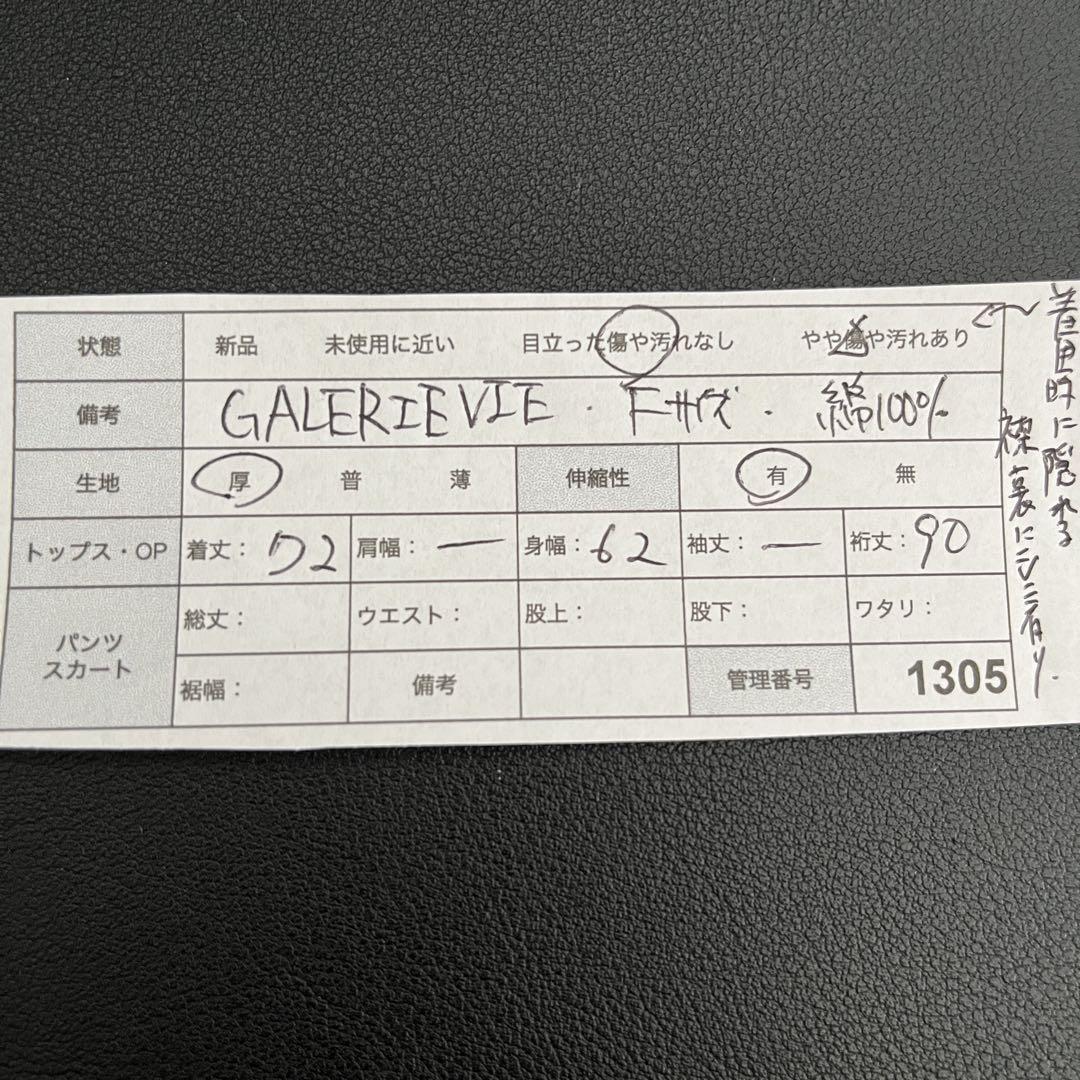 状態 新品 未使用に近い 目立った傷や汚れなし やや傷や汚れあり
備考 GALERIE VIE ・ Fサイズ ・ 綿100%
生地 厚 普 薄 伸縮性 有 無
トップス・OP 着丈: 72 肩幅: ー 身幅: 62 袖丈: ー 裄丈: 90
パンツ
スカート
総丈: ウエスト: 股上: 股下: ワタリ:
裾幅: 備考 管理番号 1305
着用時に隠れる
襟裏にシミ有り.